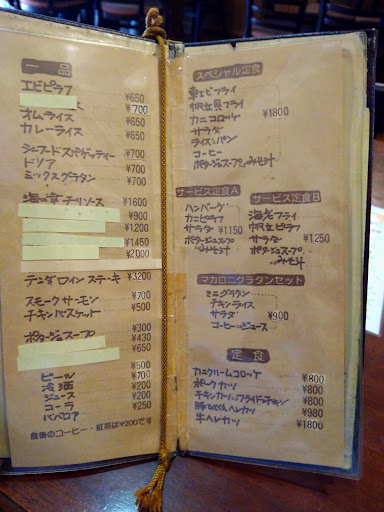 一品
エビピラフ ¥650
¥700
オムライス ¥650
カレーライス ¥650
シーフードスパゲッティー ¥700
ドリア ¥700
ミックスグラタン ¥700
チリソース ¥1600
¥900
¥1200
¥1,450
¥2000
テンダロインステーキ ¥3200
スモークサーモン ¥700
チキンバスケット ¥500
ポタージュスープ ¥300
¥430
¥650
¥500
ビール ¥700
冷酒 ¥200
ジュース ¥200
コーラ ¥250
ババロア
食後のコーヒー・紅茶は¥200です
スペシャル定食
車エビフライ
帆立貝フライ
カニコロッケ ¥1800
サラダ
ライス パン
コーヒー
ポタージュスープ みそ汁
サービス定食A
ハンバーグ
カニピラフ
サラダ ¥1150
ポタージュスープ
みそ汁
サービス定食B
海老フライ
帆立ピラフ
サラダ ¥1250
ポタージュスープ
みそ汁
マカロニグラタンセット
ミニグラタン
チキンライス
サラダ ¥900
コーヒー ジュース
定食
カニクリームコロッケ ¥800
ポークカツ ¥800
チキンカツ フライドチキン ¥800
豚ヒレカツ ¥980
牛ヘレカツ ¥1800